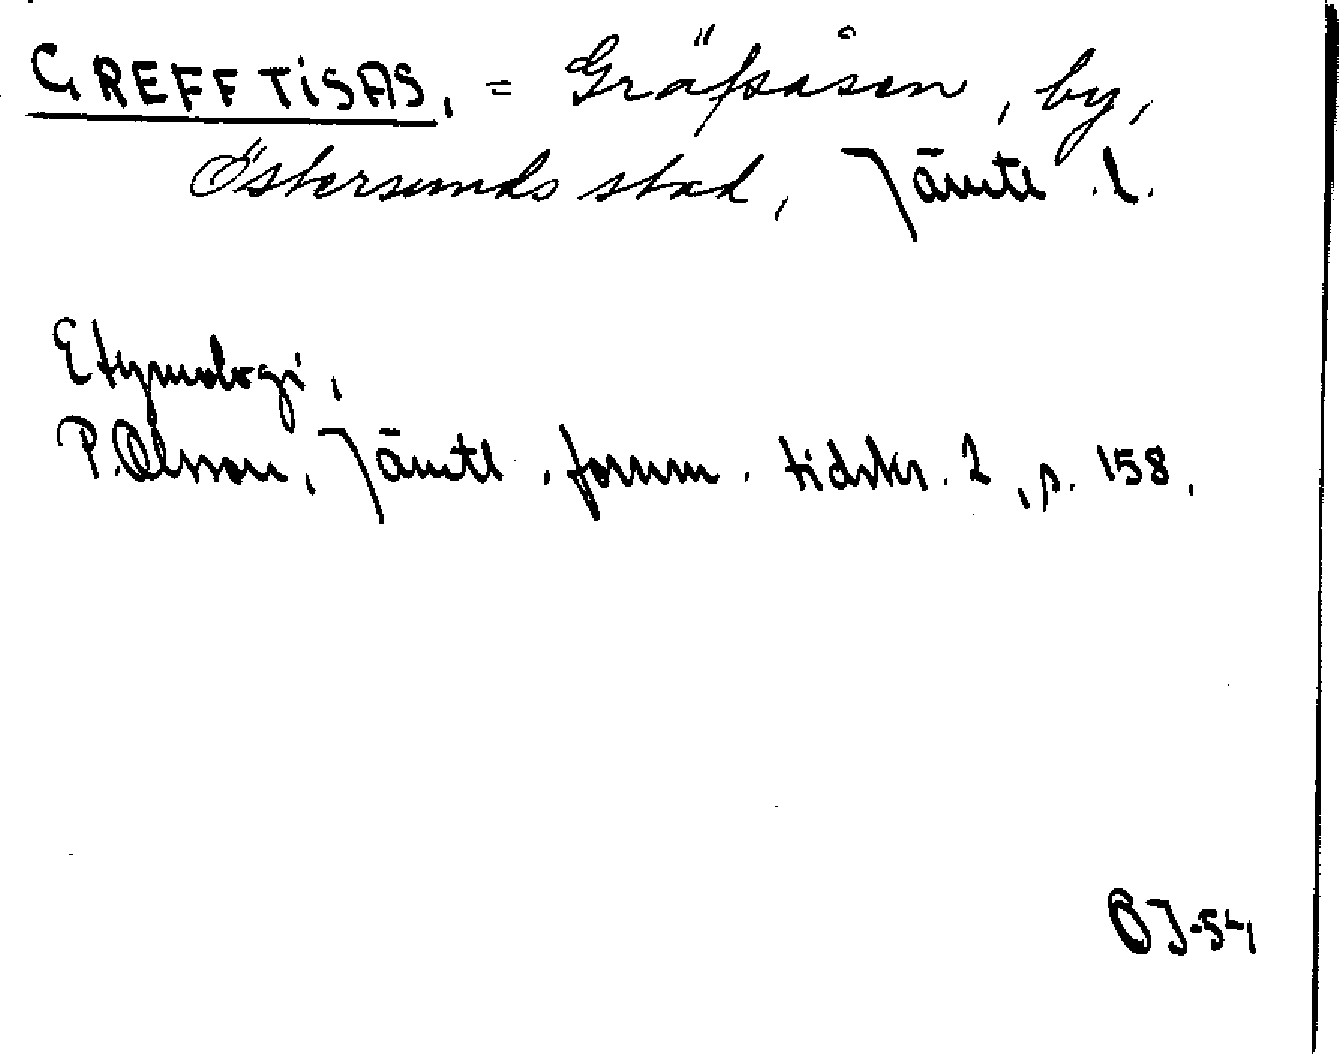 GREFFTISAS, = Gräfsåsen, by,
Östersunds stad, Jämtl. l.
Etymologi,
P. Olsson, Jämtl. fornm. tidskr. 2, s. 158,
ÖJ-54